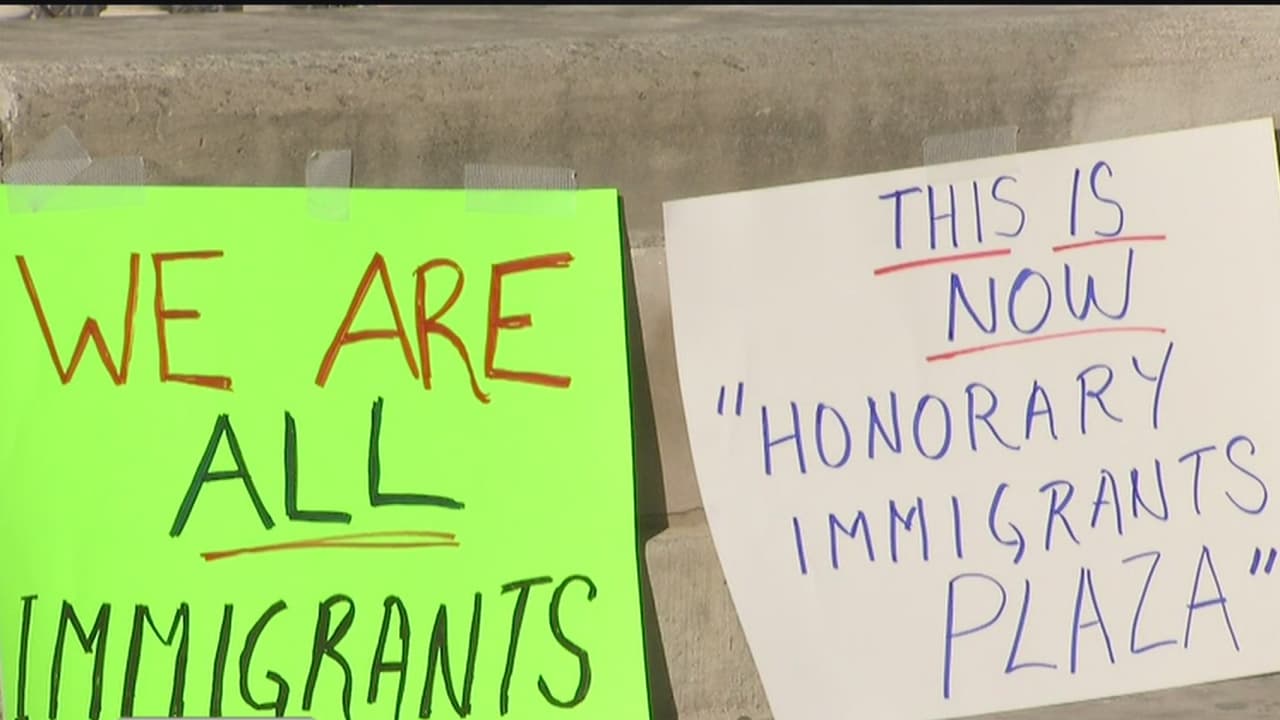 WE ARE
ALL
IMMIGRANTS
THIS IS
NOW
"HONORARY
IMMIGRANTS
PLAZA"